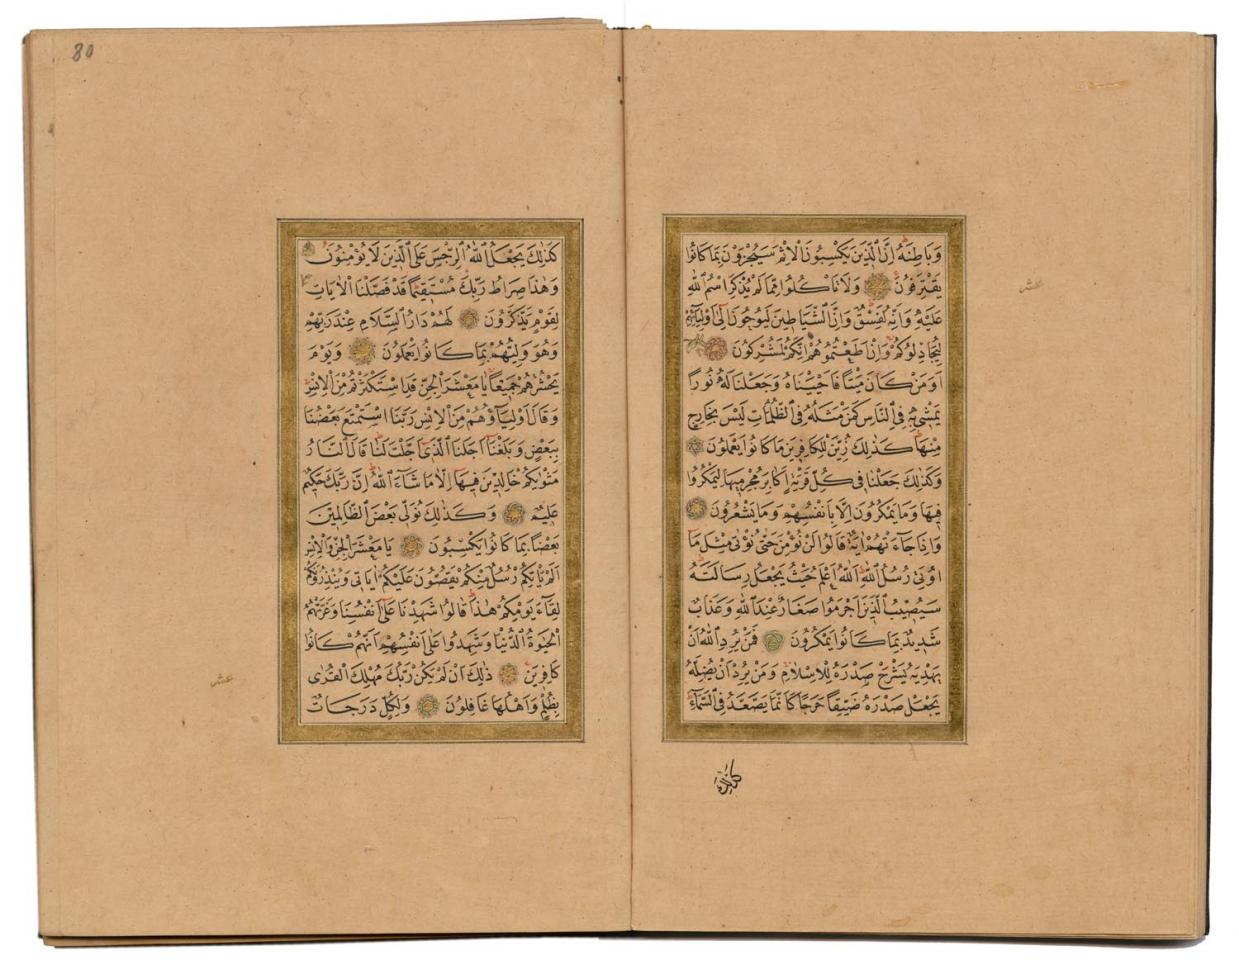 وَبَاطِنَهُ اِنَّ الَّذٖينَ يَكْسِبُونَ الْاِثْمَ سَيُجْزَوْنَ بِمَا كَانُوا
يَقْتَرِفُونَ وَلَا تَاْكُلُوا مِمَّا لَمْ يُذْكَرِ اسْمُ اللّٰهِ
عَلَيْهِ وَاِنَّهُ لَفِسْقٌ وَاِنَّ الشَّيَاطٖينَ لَيُوحُونَ اِلٰى اَوْلِيَائِهِمْ
لِيُجَادِلُوكُمْ وَاِنْ اَطَعْتُمُوهُمْ اِنَّكُمْ لَمُشْرِكُونَ
اَوَمَنْ كَانَ مَيْتًا فَاَحْيَيْنَاهُ وَجَعَلْنَا لَهُ نُورًا
يَمْشٖى بِهٖ فِى النَّاسِ كَمَنْ مَثَلُهُ فِى الظُّلُمَاتِ لَيْسَ بِخَارِجٍ
مِنْهَا كَذٰلِكَ زُيِّنَ لِلْكَافِرٖينَ مَا كَانُوا يَعْمَلُونَ
وَكَذٰلِكَ جَعَلْنَا فٖى كُلِّ قَرْيَةٍ اَكَابِرَ مُجْرِمٖيهَا لِيَمْكُرُوا
فٖيهَا وَمَا يَمْكُرُونَ اِلَّا بِاَنْفُسِهِمْ وَمَا يَشْعُرُونَ
وَاِذَا جَاءَتْهُمْ اٰيَةٌ قَالُوا لَنْ نُؤْمِنَ حَتّٰى نُؤْتٰى مِثْلَ مَا
اُوتِىَ رُسُلُ اللّٰهِ اَللّٰهُ اَعْلَمُ حَيْثُ يَجْعَلُ رِسَالَتَهُ
سَيُصٖيبُ الَّذٖينَ اَجْرَمُوا صَغَارٌ عِنْدَ اللّٰهِ وَعَذَابٌ
شَدٖيدٌ بِمَا كَانُوا يَمْكُرُونَ فَمَنْ يُرِدِ اللّٰهُ اَنْ
يَهْدِيَهُ يَشْرَحْ صَدْرَهُ لِلْاِسْلَامِ وَمَنْ يُرِدْ اَنْ يُضِلَّهُ
يَجْعَلْ صَدْرَهُ ضَيِّقًا حَرَجًا كَاَنَّمَا يَصَّعَّدُ فِى السَّمَاءِ
كذلك
عشر
80
كَذٰلِكَ يَجْعَلُ اللّٰهُ الرِّجْسَ عَلَى الَّذٖينَ لَا يُؤْمِنُونَ
وَهٰذَا صِرَاطُ رَبِّكَ مُسْتَقٖيمًا قَدْ فَصَّلْنَا الْاٰيَاتِ
لِقَوْمٍ يَذَّكَّرُونَ لَهُمْ دَارُ السَّلَامِ عِنْدَ رَبِّهِمْ
وَهُوَ وَلِيُّهُمْ بِمَا كَانُوا يَعْمَلُونَ وَيَوْمَ
يَحْشُرُهُمْ جَمٖيعًا يَا مَعْشَرَ الْجِنِّ قَدِ اسْتَكْثَرْتُمْ مِنَ الْاِنْسِ
وَقَالَ اَوْلِيَاؤُهُمْ مِنَ الْاِنْسِ رَبَّنَا اسْتَمْتَعَ بَعْضُنَا
بِبَعْضٍ وَبَلَغْنَا اَجَلَنَا الَّذٖى اَجَّلْتَ لَنَا قَالَ النَّارُ
مَثْوٰيكُمْ خَالِدٖينَ فٖيهَا اِلَّا مَا شَاءَ اللّٰهُ اِنَّ رَبَّكَ حَكٖيمٌ
عَلٖيمٌ وَكَذٰلِكَ نُوَلّٖى بَعْضَ الظَّالِمٖينَ
بَعْضًا بِمَا كَانُوا يَكْسِبُونَ يَا مَعْشَرَ الْجِنِّ وَالْاِنْسِ
اَلَمْ يَاْتِكُمْ رُسُلٌ مِنْكُمْ يَقُصُّونَ عَلَيْكُمْ اٰيَاتٖى وَيُنْذِرُونَكُمْ
لِقَاءَ يَوْمِكُمْ هٰذَا قَالُوا شَهِدْنَا عَلٰى اَنْفُسِنَا وَغَرَّتْهُمُ
الْحَيٰوةُ الدُّنْيَا وَشَهِدُوا عَلٰى اَنْفُسِهِمْ اَنَّهُمْ كَانُوا
كَافِرٖينَ ذٰلِكَ اَنْ لَمْ يَكُنْ رَبُّكَ مُهْلِكَ الْقُرٰى
بِظُلْمٍ وَاَهْلُهَا غَافِلُونَ وَلِكُلٍّ دَرَجَاتٌ
عشر